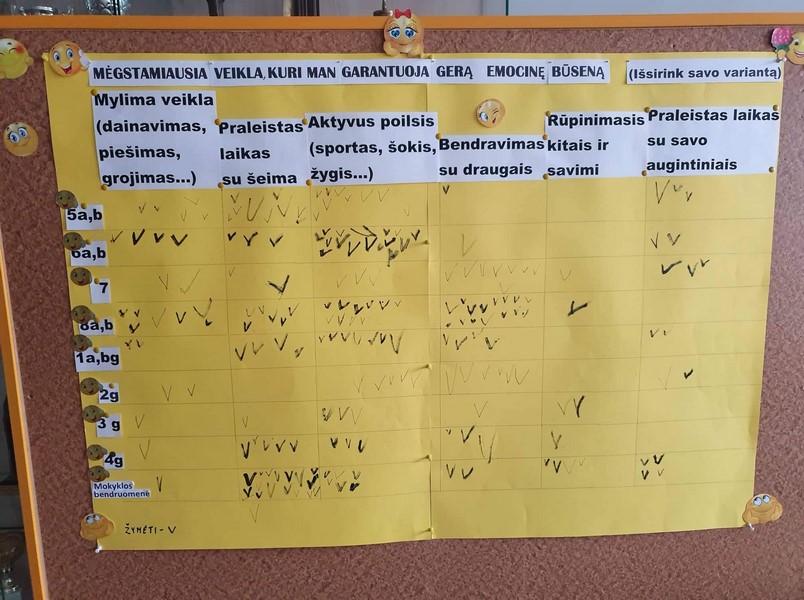 MĖGSTAMIAUSIA VEIKLA, KURI MAN GARANTUOJA GERĄ EMOCINĘ BŪSENĄ (Išsirink savo variantą)
Mylima veikla
(dainavimas,
piešimas,
grojimas...)
Praleistas
laikas
su šeima
Aktyvus poilsis
(sportas, šokis,
žygis...)
Bendravimas
su draugais
Rūpinimasis
kitais ir
savimi
Praleistas laikas
su savo
augintiniais
5a,b
6a,b
7
8a,b
1a,bg
2g
3 g
4g
Mokyklos
bendruomenė
ŽYMĖTI - V